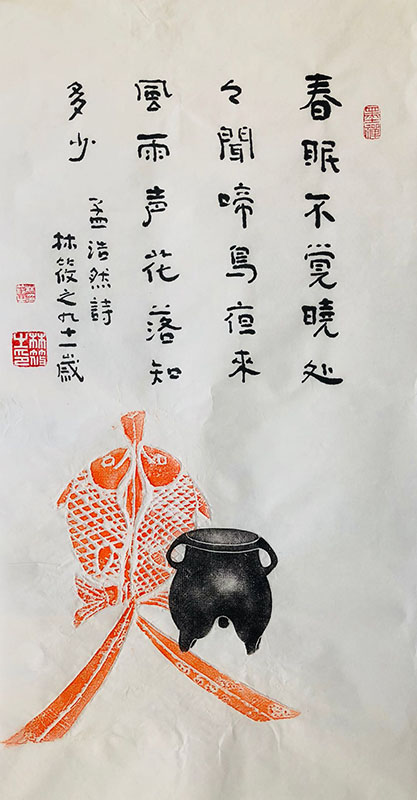 春眠不覚曉处
々聞啼鳥夜來
風雨声花落知
多少
孟浩然詩
林筱之九十一歲
林筱之印